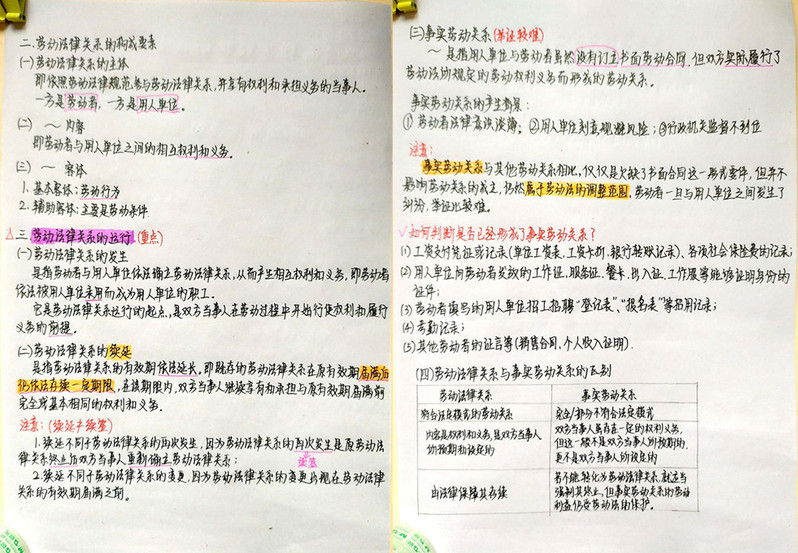 二.劳动法律关系的构成要素
(一)劳动法律关系的主体
即依照劳动法律规范参与劳动法律关系,并享有权利和承担义务的当事人。
一方是劳动者,一方是用人单位。
(二) ~ 内容
即劳动者与用人单位之间的相互权利和义务。
(三) ~ 客体
1. 基本客体:劳动行为
2. 辅助客体:主要是劳动条件
△三.劳动法律关系的运行(重点)
(一)劳动法律关系的发生
是指劳动者与用人单位依法确立劳动法律关系,从而产生相互权利和义务,即劳动者
依法被用人单位录用而成为用人单位的职工。
它是劳动法律关系运行的起点,是双方当事人在劳动过程中开始行使权利和履行
义务的前提。
(二)劳动法律关系的续延
是指劳动法律关系的有效期依法延长,即既存的劳动法律关系在原有效期届满后
仍依法存续一定期限,在该期限内,双方当事人继续享有和承担与原有效期届满前
完全或基本相同的权利和义务。
注意:(续延≠续签)
1.续延不同于劳动法律关系的再次发生,因为劳动法律关系的再次发生是原劳动法
律关系终止后双方当事人重新确立劳动法律关系;
续签
2.续延不同于劳动法律关系的变更,因为劳动法律关系的变更出现在劳动法律
关系的有效期届满之前。
(三)事实劳动关系(举证较难)
~ 是指用人单位与劳动者虽然没有订立书面劳动合同,但双方实际履行了
劳动法所规定的劳动权利义务而形成的劳动关系。
事实劳动关系的产生背景:
① 劳动者法律意识淡薄;②用人单位刻意规避风险;③行政机关监督不到位
注意:
事实劳动关系与其他劳动关系相比,仅仅是欠缺了书面合同这一形式要件,但并不
影响劳动关系的成立,仍然属于劳动法的调整范围,劳动者一旦与用人单位之间发生了
纠纷,举证比较难。
√如何判断是否已经形成了事实劳动关系?
(1)工资支付凭证或记录(单位工资表、工资卡折、银行转账记录)、各项社会保险费的记录;
(2)用人单位向劳动者发放的工作证、服务证、餐卡、出入证、工作服等能够证明身份的
证件;
(3)劳动者填写的用人单位招工招聘“登记表”、“报名表”等招用记录;
(4)考勤记录;
(5)其他劳动者的证言等(销售合同、个人收入证明).
(四)劳动法律关系与事实劳动关系的区别
劳动法律关系 事实劳动关系
符合法定模式的劳动关系 完全/部分不符合法定模式
内容是权利和义务,是双方当事人 双方当事人虽存在一定的权利义务,
所预期和设定的 但这一般不是双方当事人所预期的,
更不是双方当事人所设定的
由法律保障其存续 若不能转化为劳动法律关系,就应当
强制其终止,但事实劳动关系的劳动
利益仍受劳动法的保护。